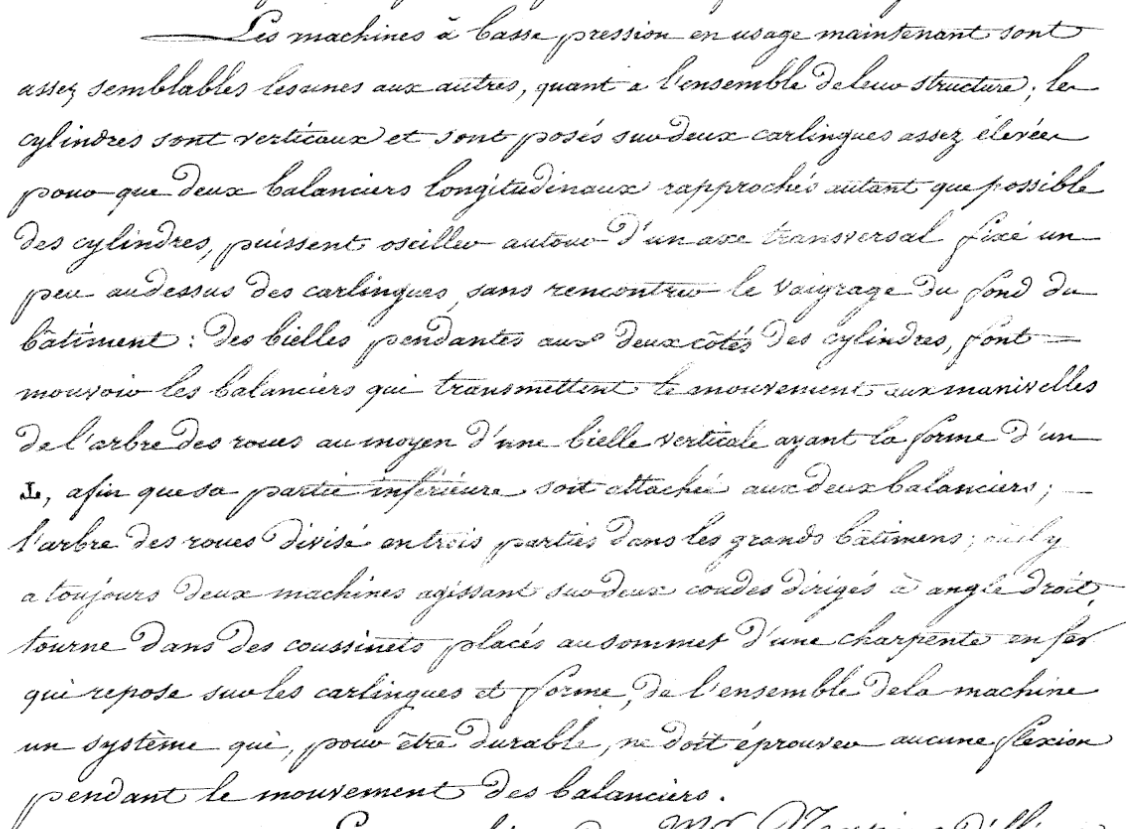 Les machines à basse pression en usage maintenant sont
assez semblables les unes aux autres, quant a l'ensemble de leur structure; les
cylindres sont verticaux et sont posés sur deux carlingues assez élevées
pour que deux balanciers longitudinaux rapprochés autant que possible
des cylindres, puissent osciller autour d'un axe transversal fixé un
peu au dessus des carlingues, sans rencontrer le vaigrage du fond du
bâtiment : des bielles pendantes aux deux côtés des cylindres, font
mouvoir les balanciers qui transmettent le mouvement aux manivelles
de l'arbre des roues au moyen d'une bielle verticale ayant la forme d'un
⊥, afin que sa partie inférieure soit attachée aux deux balanciers;
l'arbre des roues divisé en trois parties dans les grands bâtimens; où il y
a toujours deux machines agissant sur deux coudes dirigés à angle droit,
tourne dans des coussinets placés au sommet d'une charpente en fer
qui repose sur les carlingues et forme, de l'ensemble de la machine
un système qui, pour être durable, ne doit éprouver aucune flexion
pendant le mouvement des balanciers.